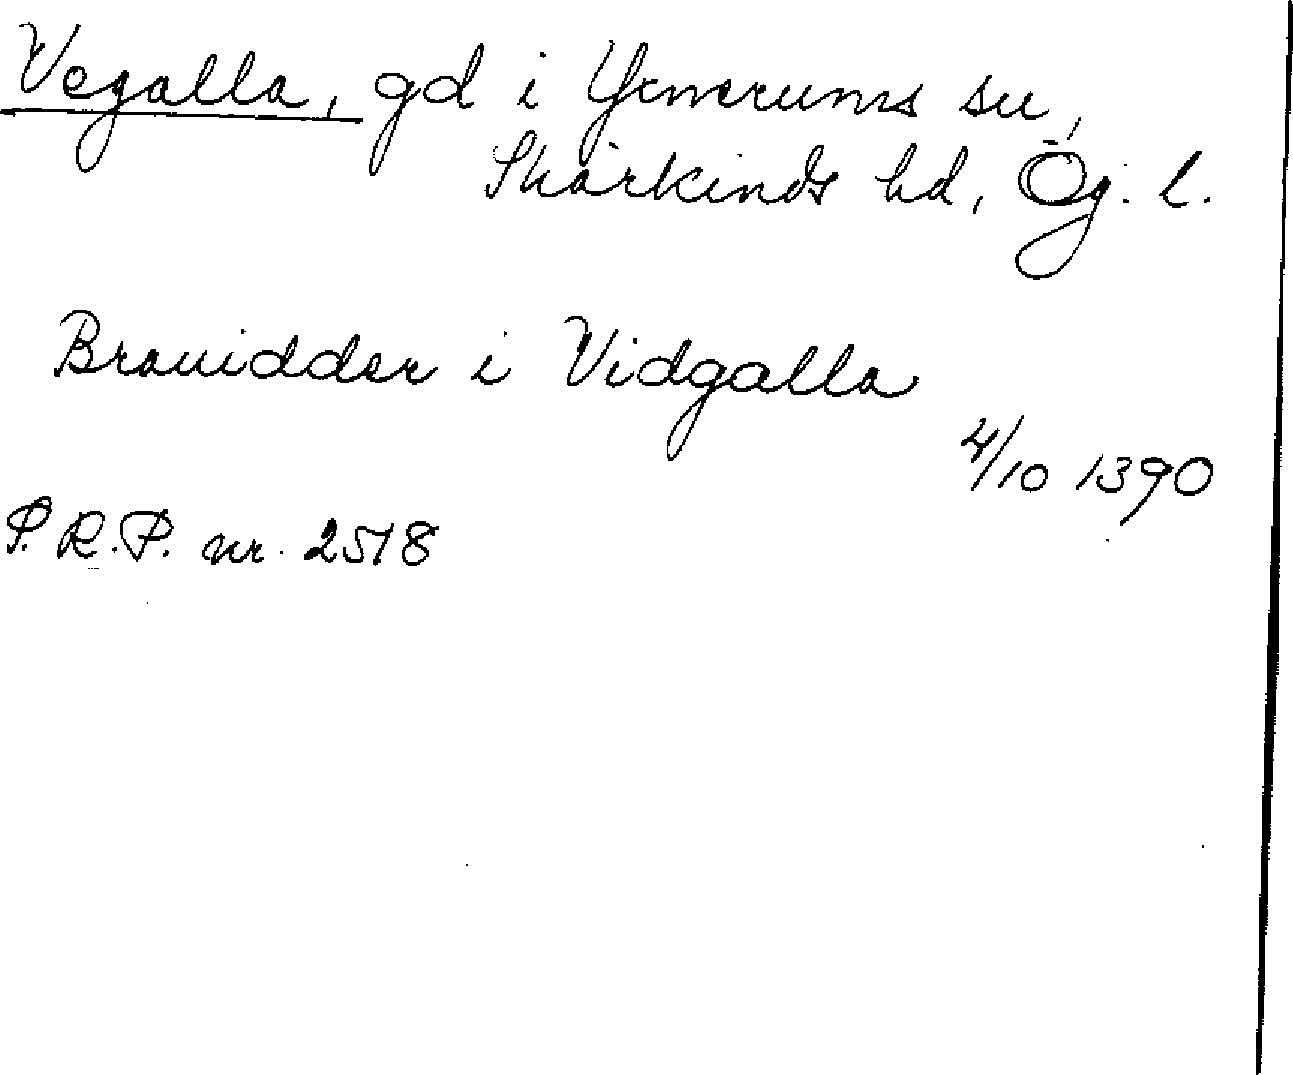 Vegalla, gd i Gymerums sn,
Skärkinds hd, Ög. l.
Brauidder i Vidgalla
4/10 1390
P. R. P. nr. 2518